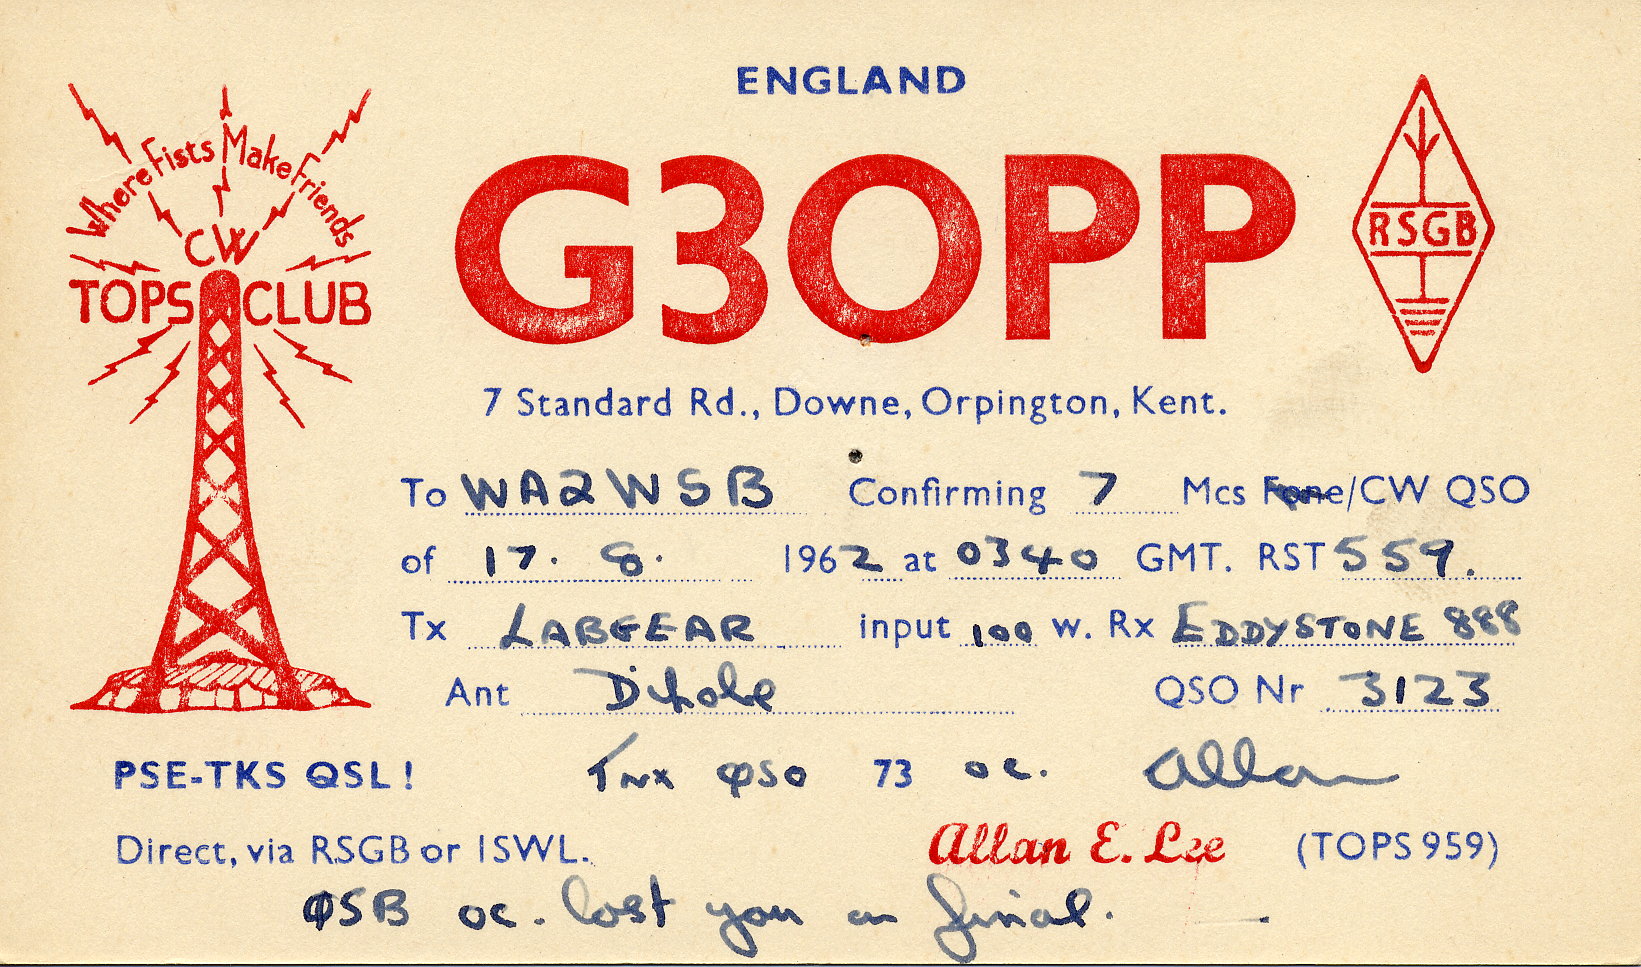 ENGLAND
Where Fists Make Friends
CW
TOPS CLUB
G3OPP
RSGB
7 Standard Rd., Downe, Orpington, Kent.
To WA2WSB Confirming 7 Mcs Fone/CW QSO
of 17. 8. 1962 at 0340 GMT. RST 559.
Tx LABGEAR input 100 w. Rx EDDYSTONE 888
Ant Dipole QSO Nr 3123
PSE-TKS QSL! Tnx QSO 73 oc. Allan
Direct, via RSGB or ISWL. Allan E. Lee (TOPS 959)
QSB oc. lost you on final.